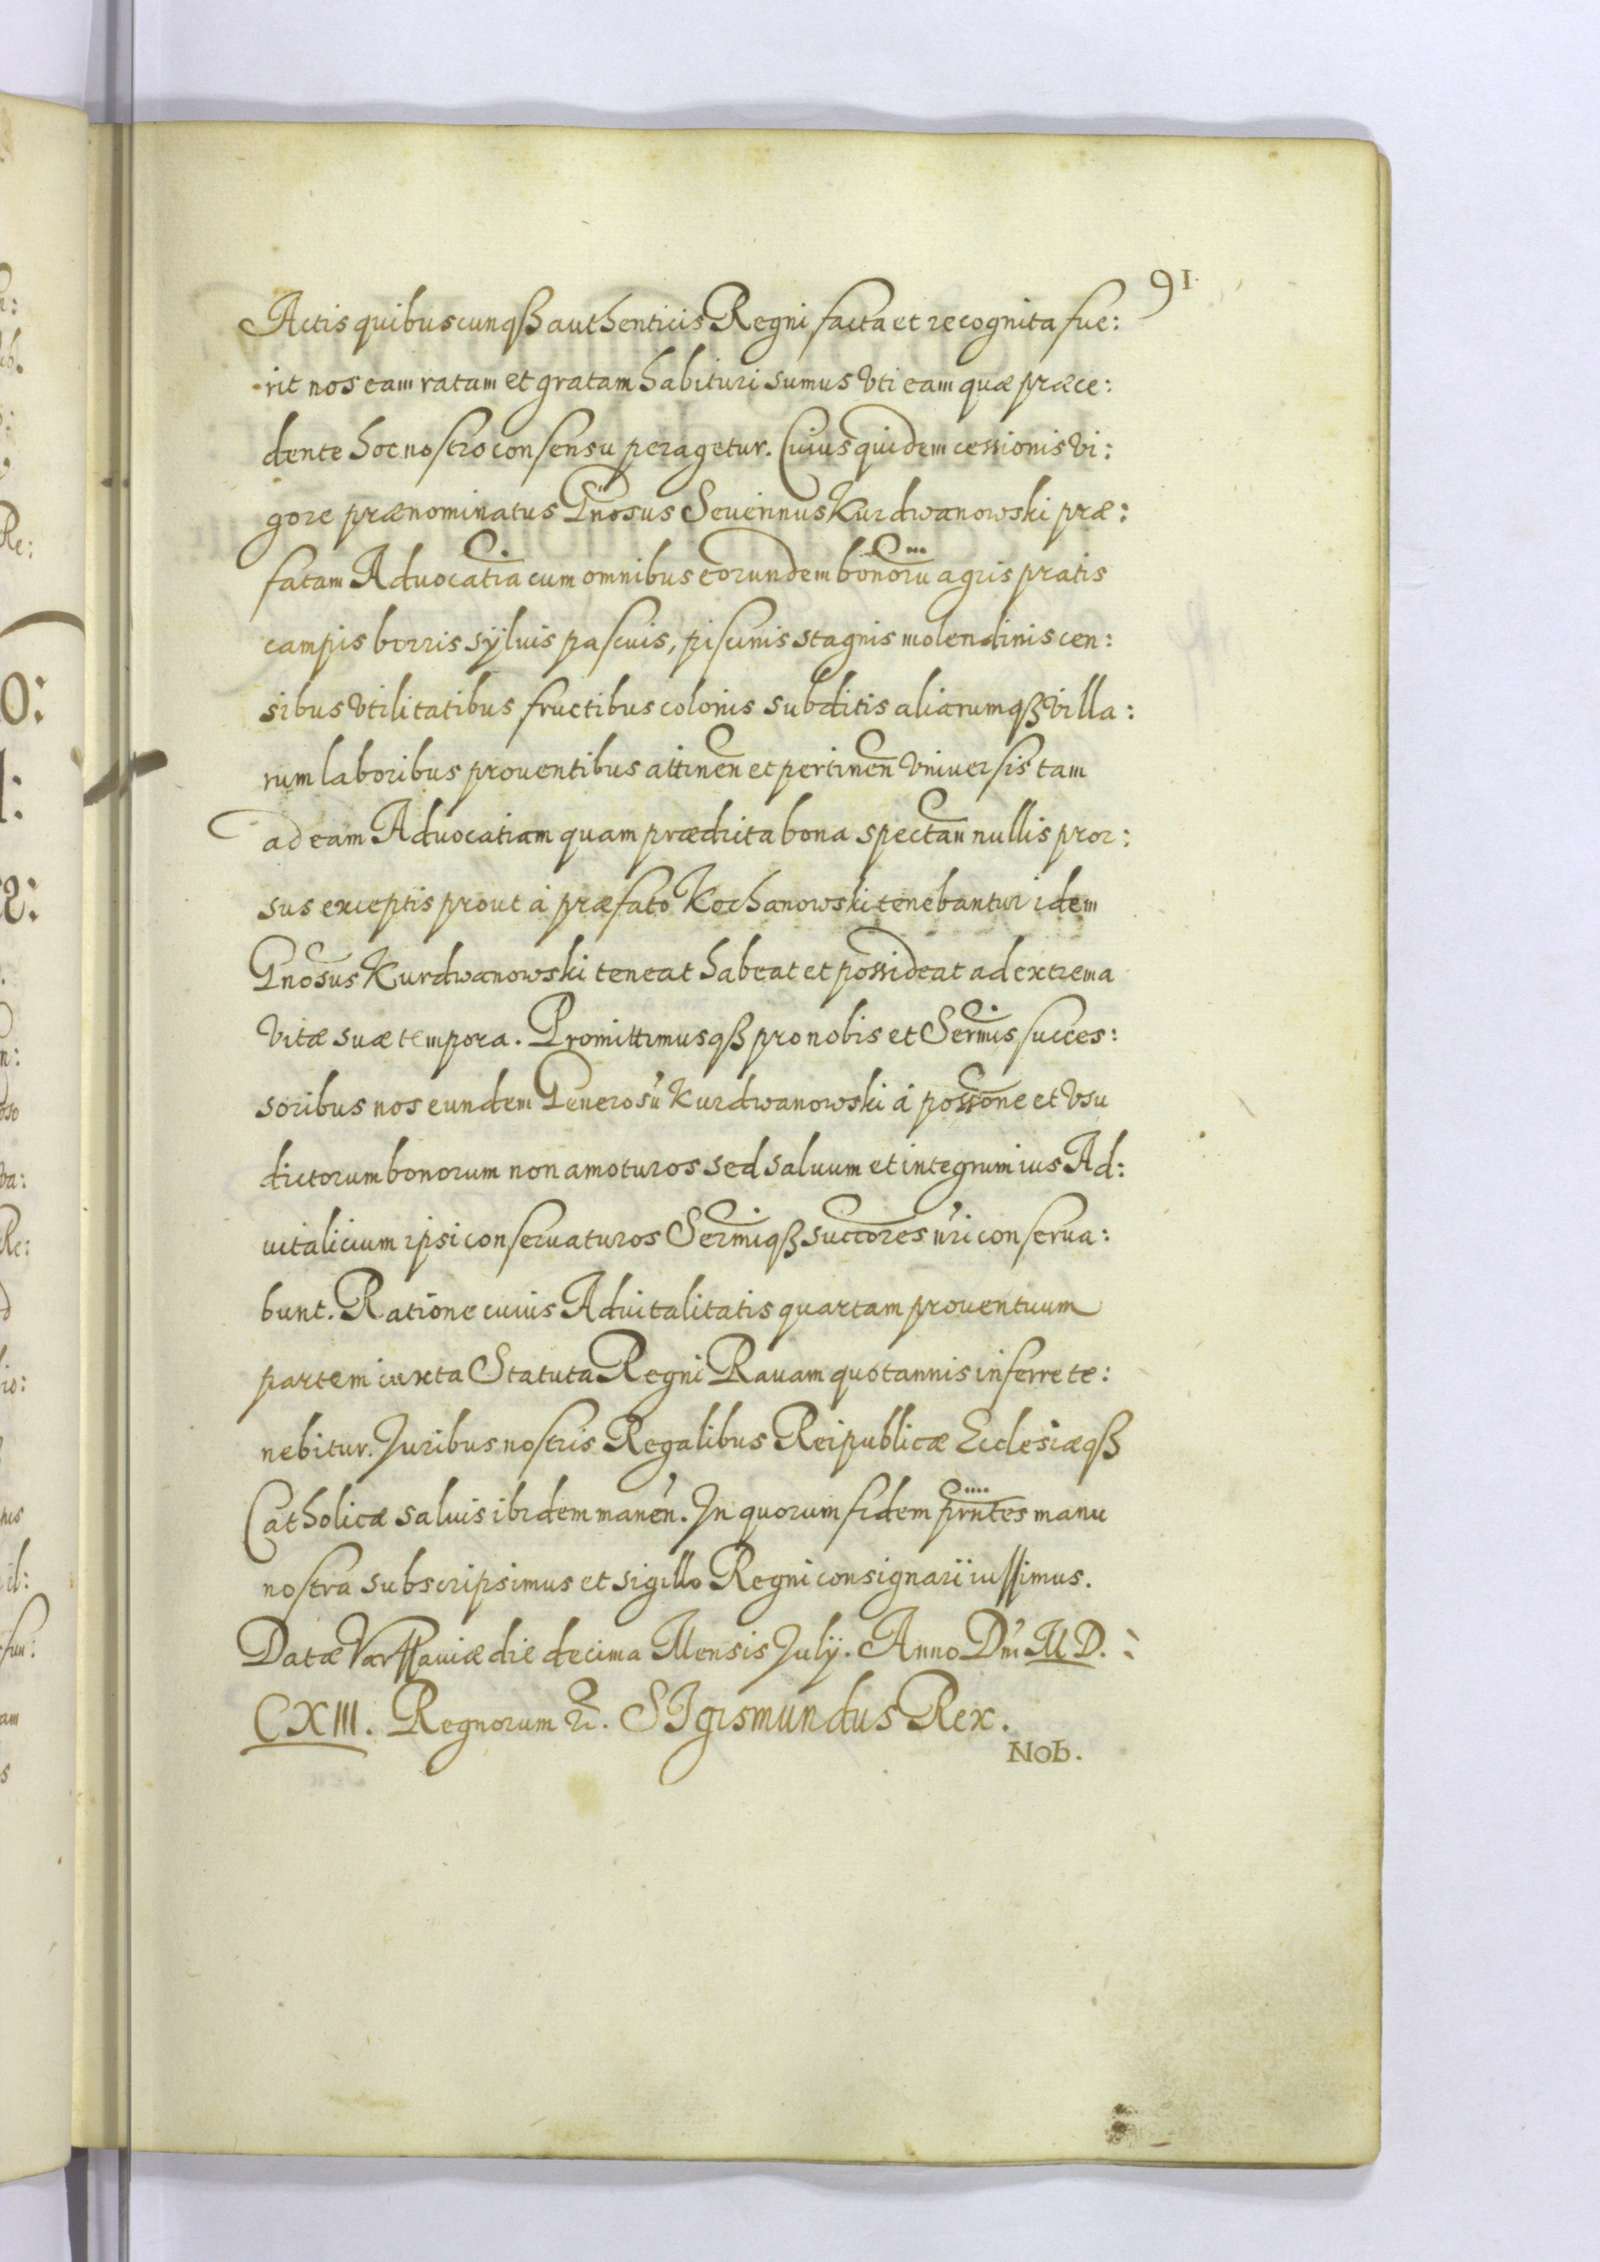 91.
Actis quibuscunqß authenticis Regni facta et recognita fue:
rit nos eam ratam et gratam habituri sumus vti eam quæ præce:
dente hoc nostro consensu peragetur. Cuius quidem cessionis vi:
gore prænominatus Gnosus Seuerinus Kurdwanowski præ:
fatam Aduocatia cum omnibus eorundem bonoru agris pratis
campis borris sÿluis pascuis, piscinis stagnis molendinis cen:
sibus vtilitatibus fructibus colonis subditis aliarumqß villa:
rum laboribus prouentibus attinen et pertinen vniuersis tam
ad eam Aduocatiam quam prædicta bona spectan nullis pror:
sus exceptis prout à præfato Kochanowski tenebantur idem
Gnosus Kurdwanowski teneat habeat et possideat ad extrema
vitæ suæ tempora. Promittimusqß pro nobis et Sermis succes:
soribus nos eundem Generosu Kurdwanowski à possone et vsu
dictorum bonorum non amoturos sed saluum et integrum ius Ad:
uitalicium ipsi conseruaturos Sermiqß succores nri conserua:
bunt. Ratione cuius Aduitalitatis quartam prouentuum
partem iuxta Statuta Regni Rauam quotannis inferre te:
nebitur. Juribus nostris Regalibus Reipublicæ Ecclesiæqß
Catholicæ saluis ibidem manen. In quorum fidem prntes manu
nostra subscripsimus et sigillo Regni consignari iussimus.
Datæ Varssauiæ die decima Mensis Julÿ. Anno Dni M D.
CXIII. Regnorum &. SIgismundus Rex.
Nob.